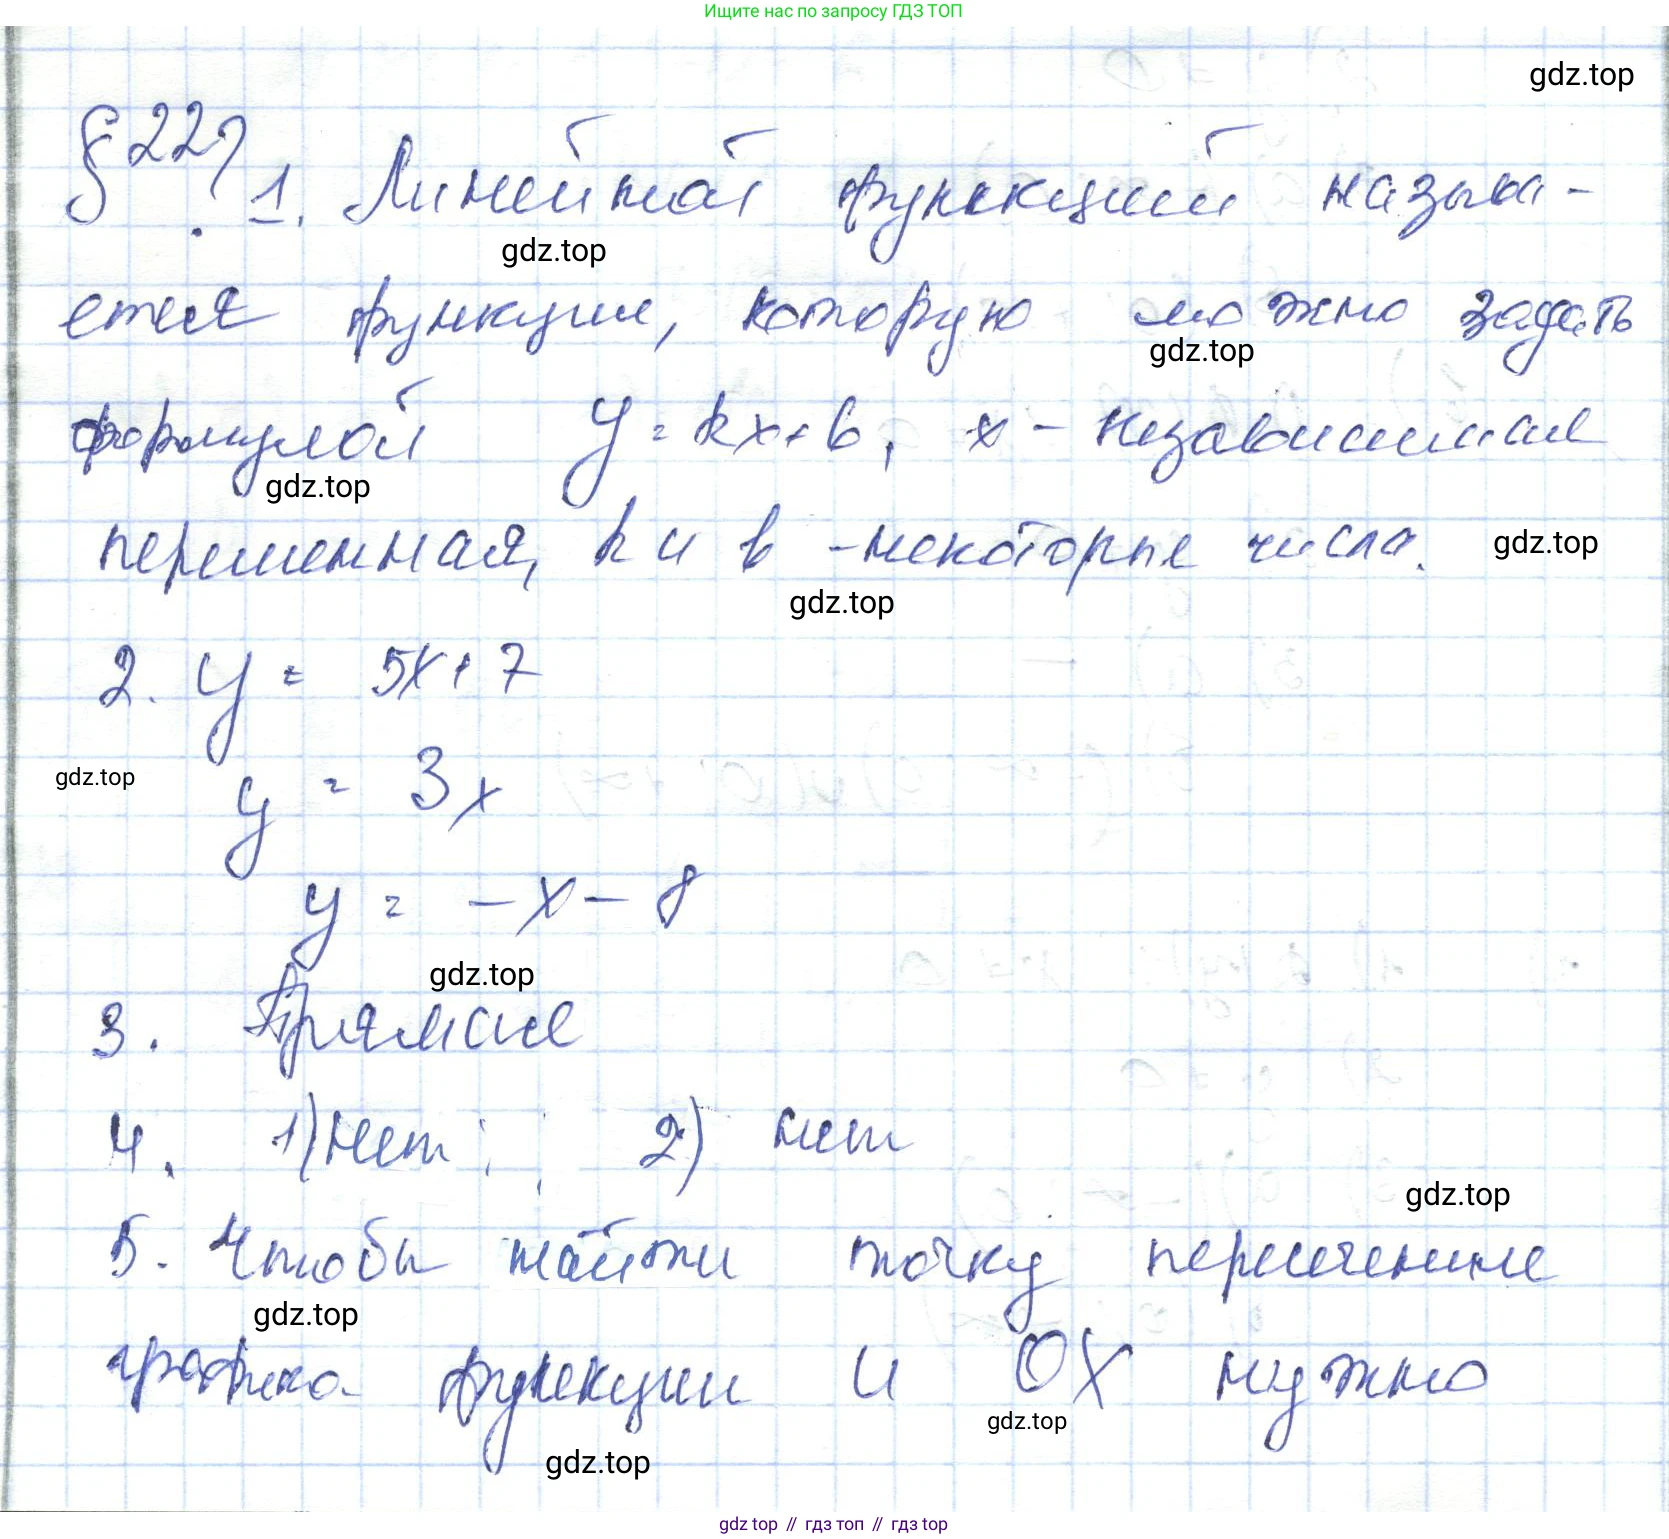 Ищите нас по запросу ГДЗ ТОП
gdz.top
§22? 1. Линейной функцией назыв-
gdz.top
ается функция, которую можно задать
gdz.top
формулой y = kx+b, x - независимая
gdz.top
переменная, k и b - некоторые числа.
gdz.top
gdz.top
2. y = 5x+7
gdz.top
y = 3x
y = -x-8
gdz.top
3. Прямая
4. 1) нет; 2) нет
gdz.top
5. Чтобы найти точку пересечения
gdz.top
графика функции и OX нужно
gdz.top
gdz.top
gdz top // гдз топ // гдз top